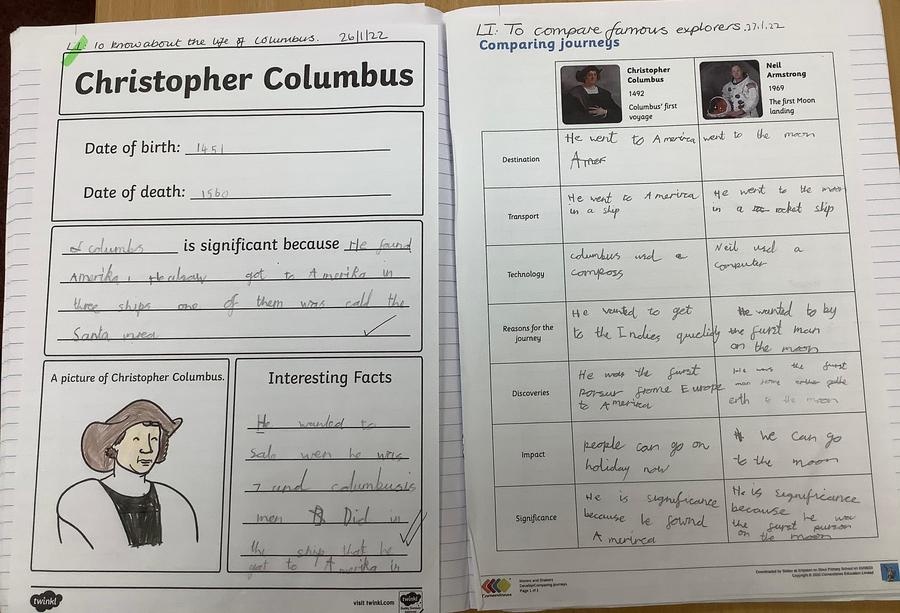 LI: To know about the life of Columbus. 26/1/22
Christopher Columbus
Date of birth: 1451
Date of death: 1560
columbus is significant because He found
Amerika, He alsow got to Amerika in
three ships one of them was cald the
Santa
A picture of Christopher Columbus.
Interesting Facts
He wanted to
Sale wen he was
7 and columbusis
men Did in
the ship that he
got to Amerika in
twinkl
visit twinkl.com
twinkl
LI: To compare famous explorers. 27.1.22
Comparing journeys
Christopher Columbus
1492
Columbus' first voyage
Neil Armstrong
1969
The first Moon landing
Destination
He went to America
Amer
went to the moon
Transport
He went to America
in a ship
He went to the moon
in a rocket ship
Technology
columbus usd a
composs
Neil usd a
computer
Reasons for the journey
He wanted to get
to the Indies quickly
He wanted to by
the furst man
on the moon
Discoveries
He was the furst
persur frome Europe
to America
He was the furst
man frome
erth to the moon
Impact
people can go on
holiday now
we can go
to the moon
Significance
He is significance
because he fownd
America
He is significance
because he was
the furst purson
on the moon
Cornerstones
Movers and Shakers
Develop/Comparing journeys
Page 1 of 1
Copyright © 2020 Cornerstones Education Limited